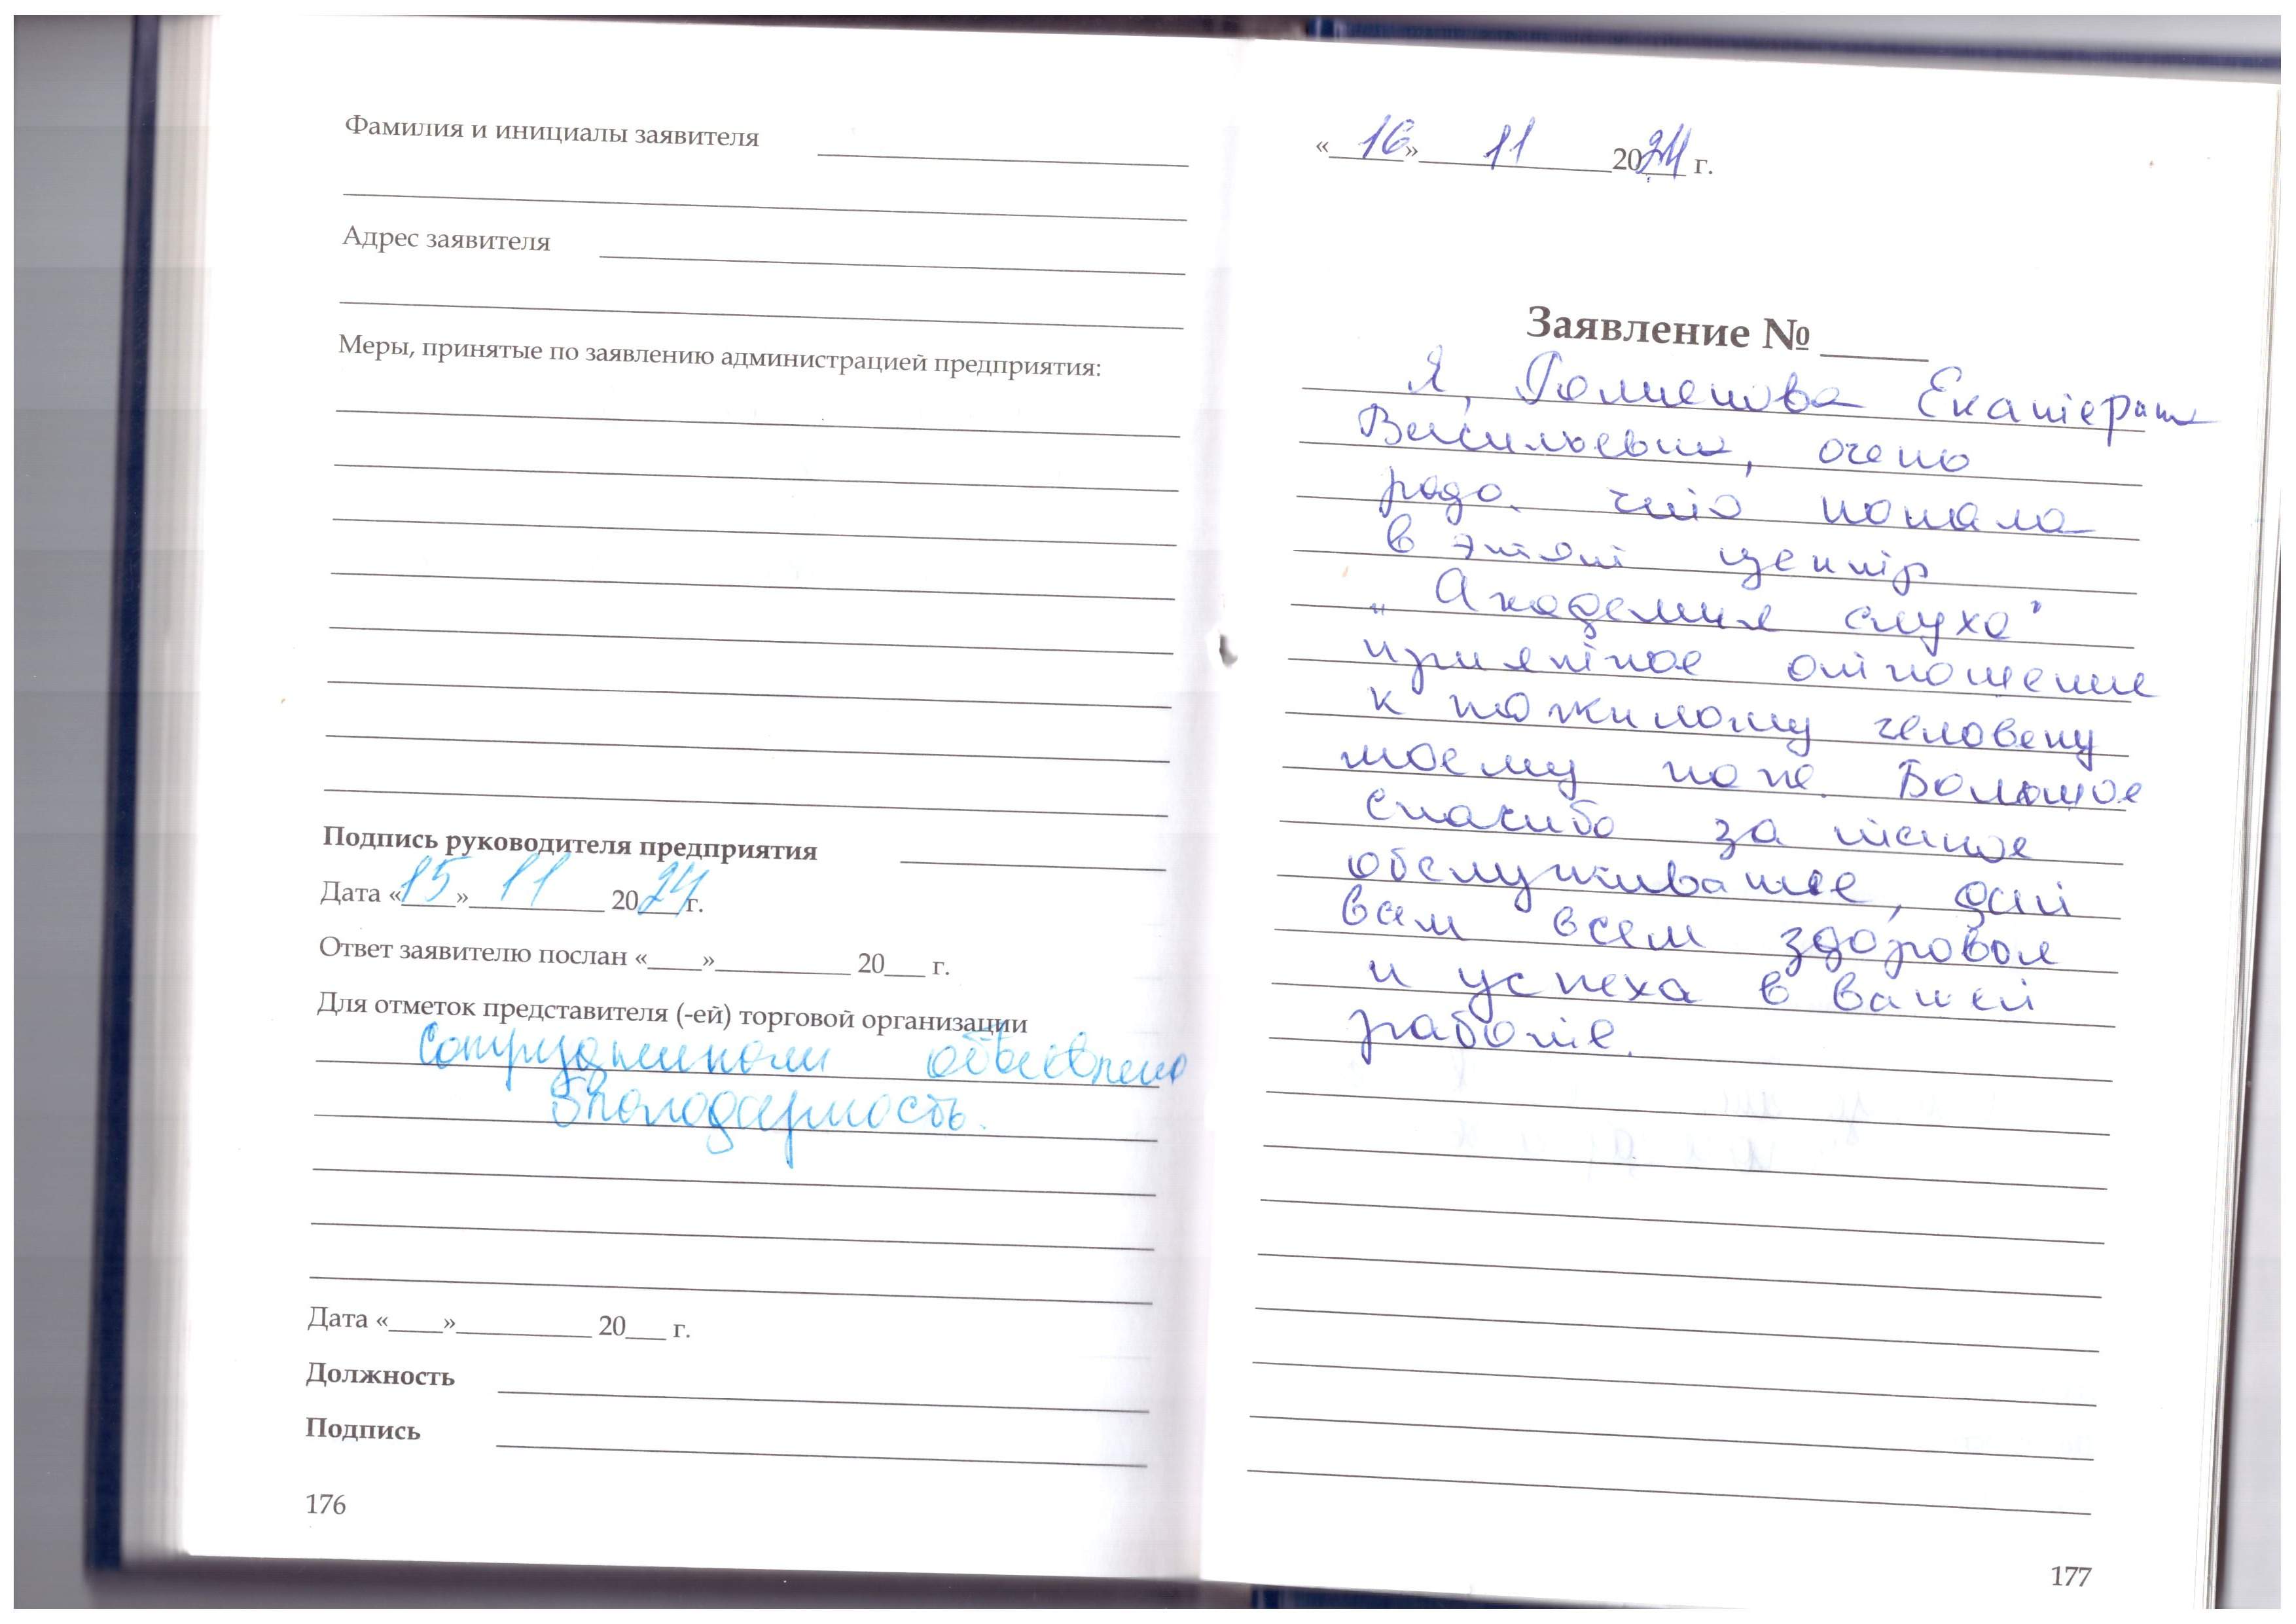 Фамилия и инициалы заявителя
Адрес заявителя
Меры, принятые по заявлению администрацией предприятия:
Подпись руководителя предприятия
Дата «15» 11 2024 г.
Ответ заявителю послан «____»__________ 20___ г.
Для отметок представителя (-ей) торговой организации
Сотрудникам объявлена
Благодарность.
Дата «____»__________ 20___ г.
Должность
Подпись
176
«16» 11 2024 г.
Заявление № _____
Я, Екатерина
Васильевна, очень
рада, что попала
в этот центр
"Академия слуха"
приятное отношение
к пожилому человеку
моему папе. Большое
спасибо за такое
обслуживание, дай
вам всем здоровья
и успеха в вашей
работе.
177